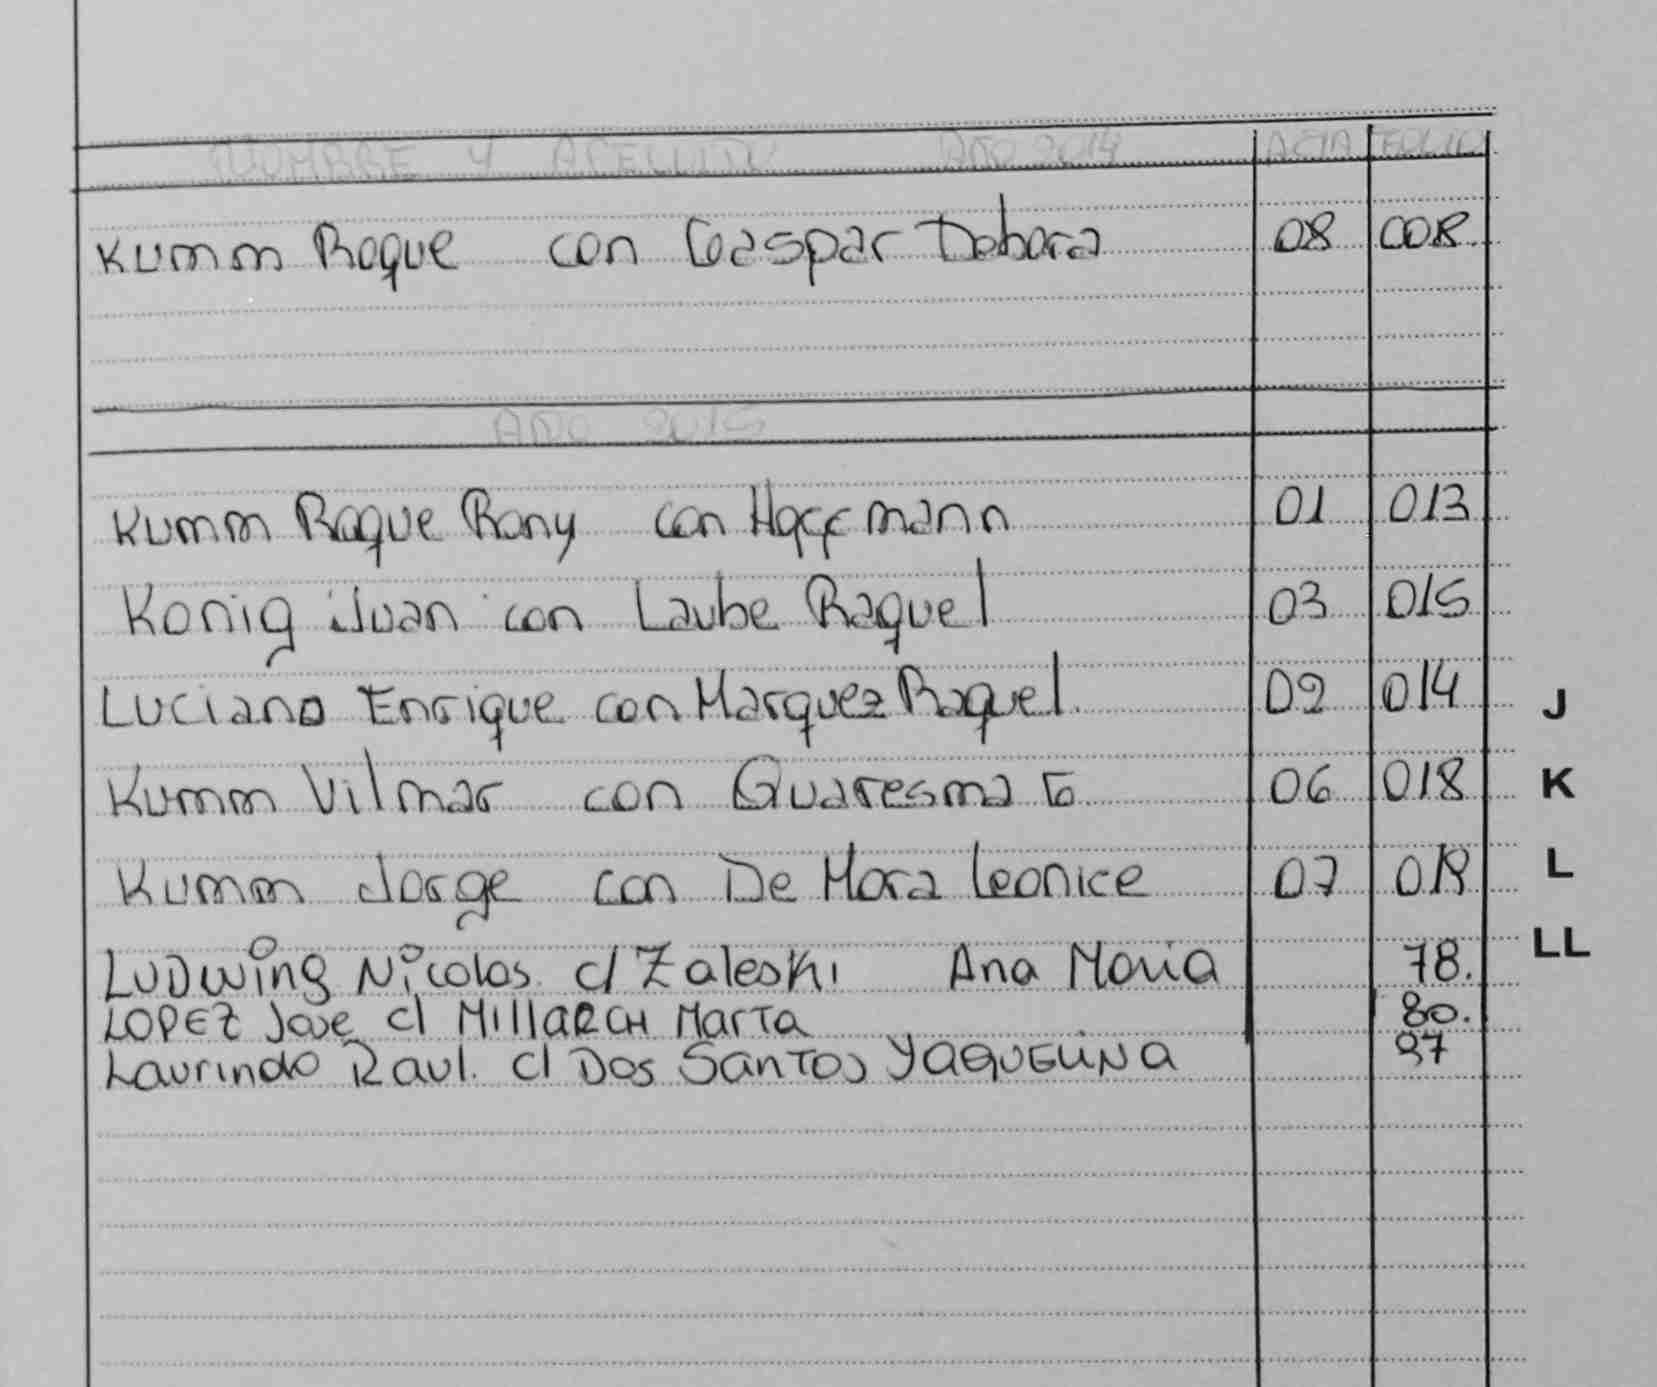 NOMBRE Y APELLIDO AÑO 2014 ACTA FOLIO
Kumm Roque con Gaspar Debora 08 008
AÑO 2015
Kumm Roque Rony con Hoffmann 01 013
Konig Juan con Laube Raquel 03 015
Luciano Enrique con Marquez Raquel 02 014
J
Kumm Vilmar con Quaresma G 06 018
K
Kumm Jorge con De Mora Leonice 07 019
L
LUDWING Nicolas c/ Zaleski Ana Maria 78.
LL
LOPEZ Jose c/ MILLARCH Marta 80.
Laurindo Raul. c/ Dos Santos YAQUELINA 97